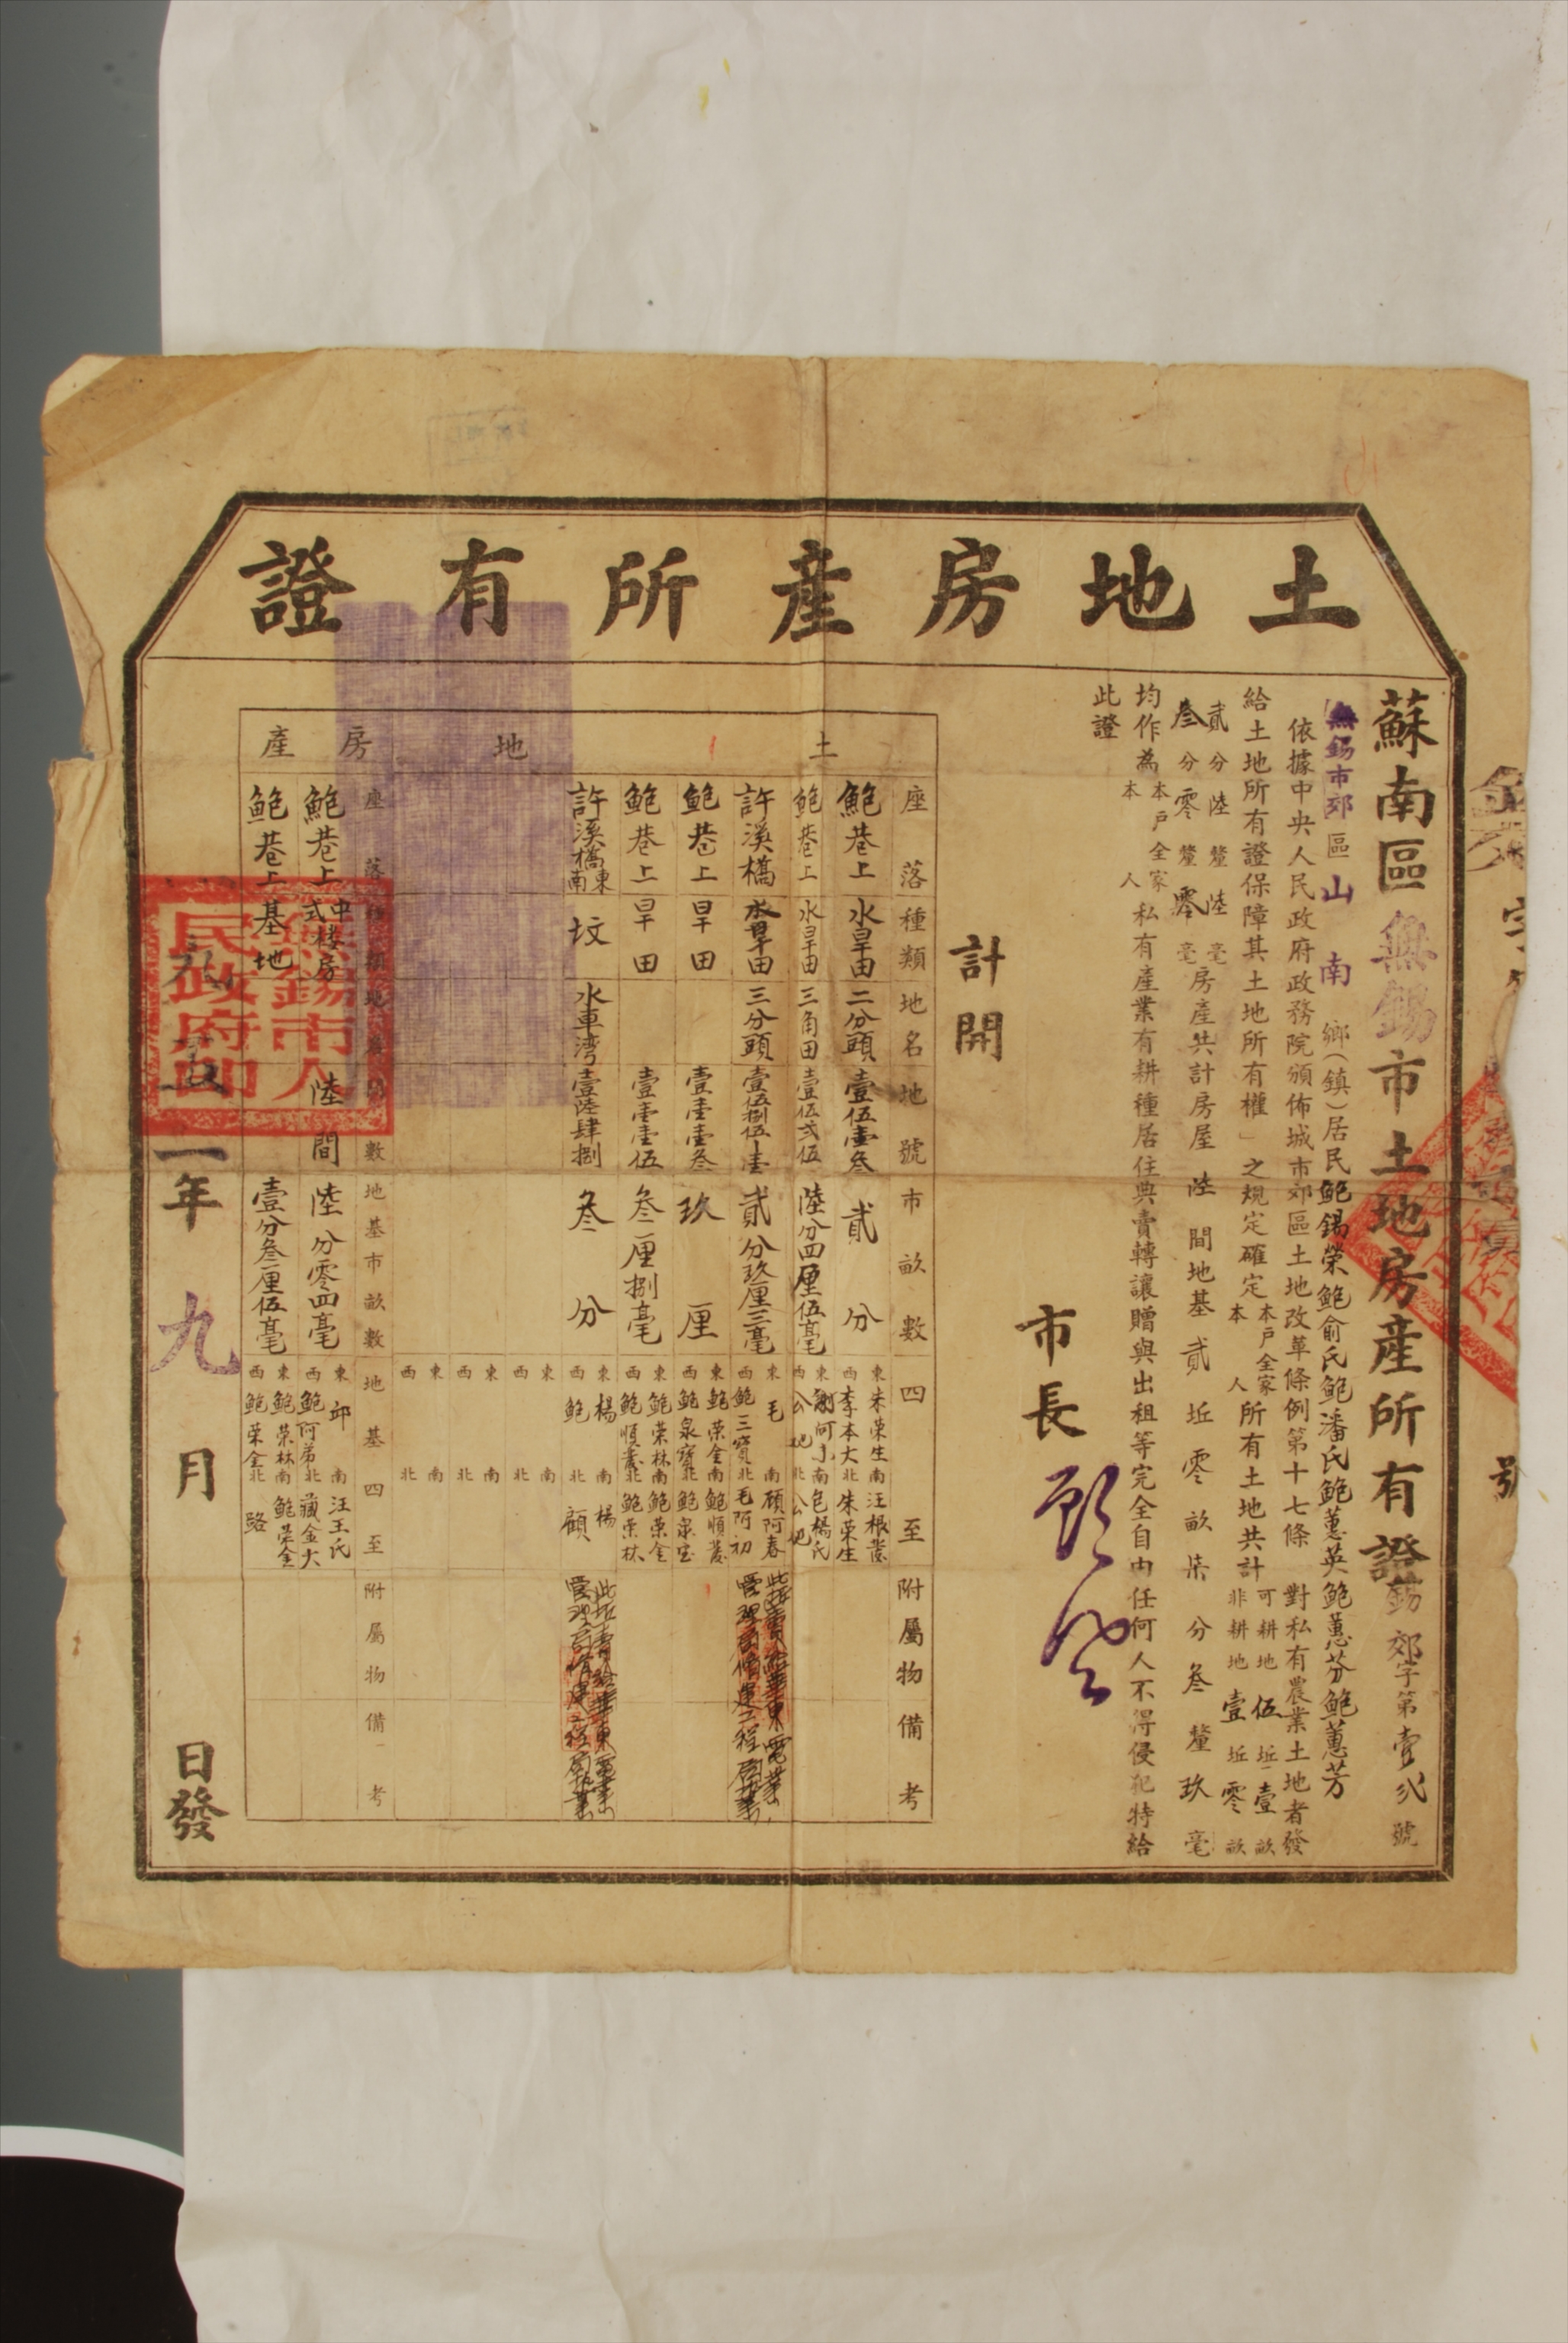 土地房產所有證
蘇南區無錫市土地房產所有證錫郊字第壹弍號
無錫市郊區山南鄉(鎮)居民鮑錫榮鮑俞氏鮑潘氏鮑蕙英鮑蕙芬鮑蕙芳
依據中央人民政府政務院頒佈城市郊區土地改革條例第十七條對私有農業土地者發
給土地所有證保障其土地所有權」之規定確定本戶全家本人所有土地共計可耕地伍坵壹畝非耕地壹坵零畝
貳分陸釐陸毫
叁分零釐零毫房產共計房屋陸間地基貳坵零畝柒分叁釐玖毫
均作為本戶全家本人私有產業有耕種居住典賣轉讓贈與出租等完全自由任何人不得侵犯特給
此證
市長
計開
土地
座落 種類 地名 地號 市畝數 四至 附屬物 備考
鮑巷上 水旱田 二分頭 壹伍壹叁 貳分 東朱荣生 南汪根發 西李本大 北朱荣生
鮑巷上 水旱田 三角田 壹伍弍伍 陸分四厘伍毫 東謝阿小 南包楊氏 西公地 北公地
許溪橋 水旱田 三分頭 壹伍捌伍壹 貳分玖厘三毫 東毛 南顧阿春 西鮑三寶 北毛阿初
鮑巷上 旱田 壹壹壹叁 玖厘 東鮑荣金 南鮑順發 西鮑泉寶 北鮑泉宝
鮑巷上 旱田 壹壹壹伍 叁厘捌毫 東鮑荣林 南鮑荣金 西鮑順發 北鮑荣林
許溪橋東南 坟 水車湾 壹陸肆捌 叁分 東楊 南楊 西鮑 北顧
東 南 西 北
東 南 西 北
東 南 西 北
房產
座落 數 地基市畝數 地基四至 附屬物 備考
鮑巷上 中式楼房 陸間 陸分零四毫 東邱 南汪王氏 西鮑阿弟 北臧金大
鮑巷上 基地 壹分叁厘伍毫 東鮑荣林 南鮑荣金 西鮑荣金 北路
一年九月日發
無錫市人民政府印